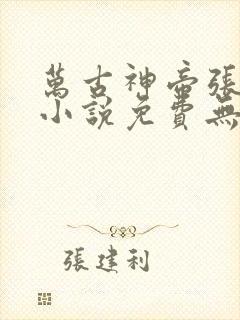 萬古神帝張
小說免費無
張建利